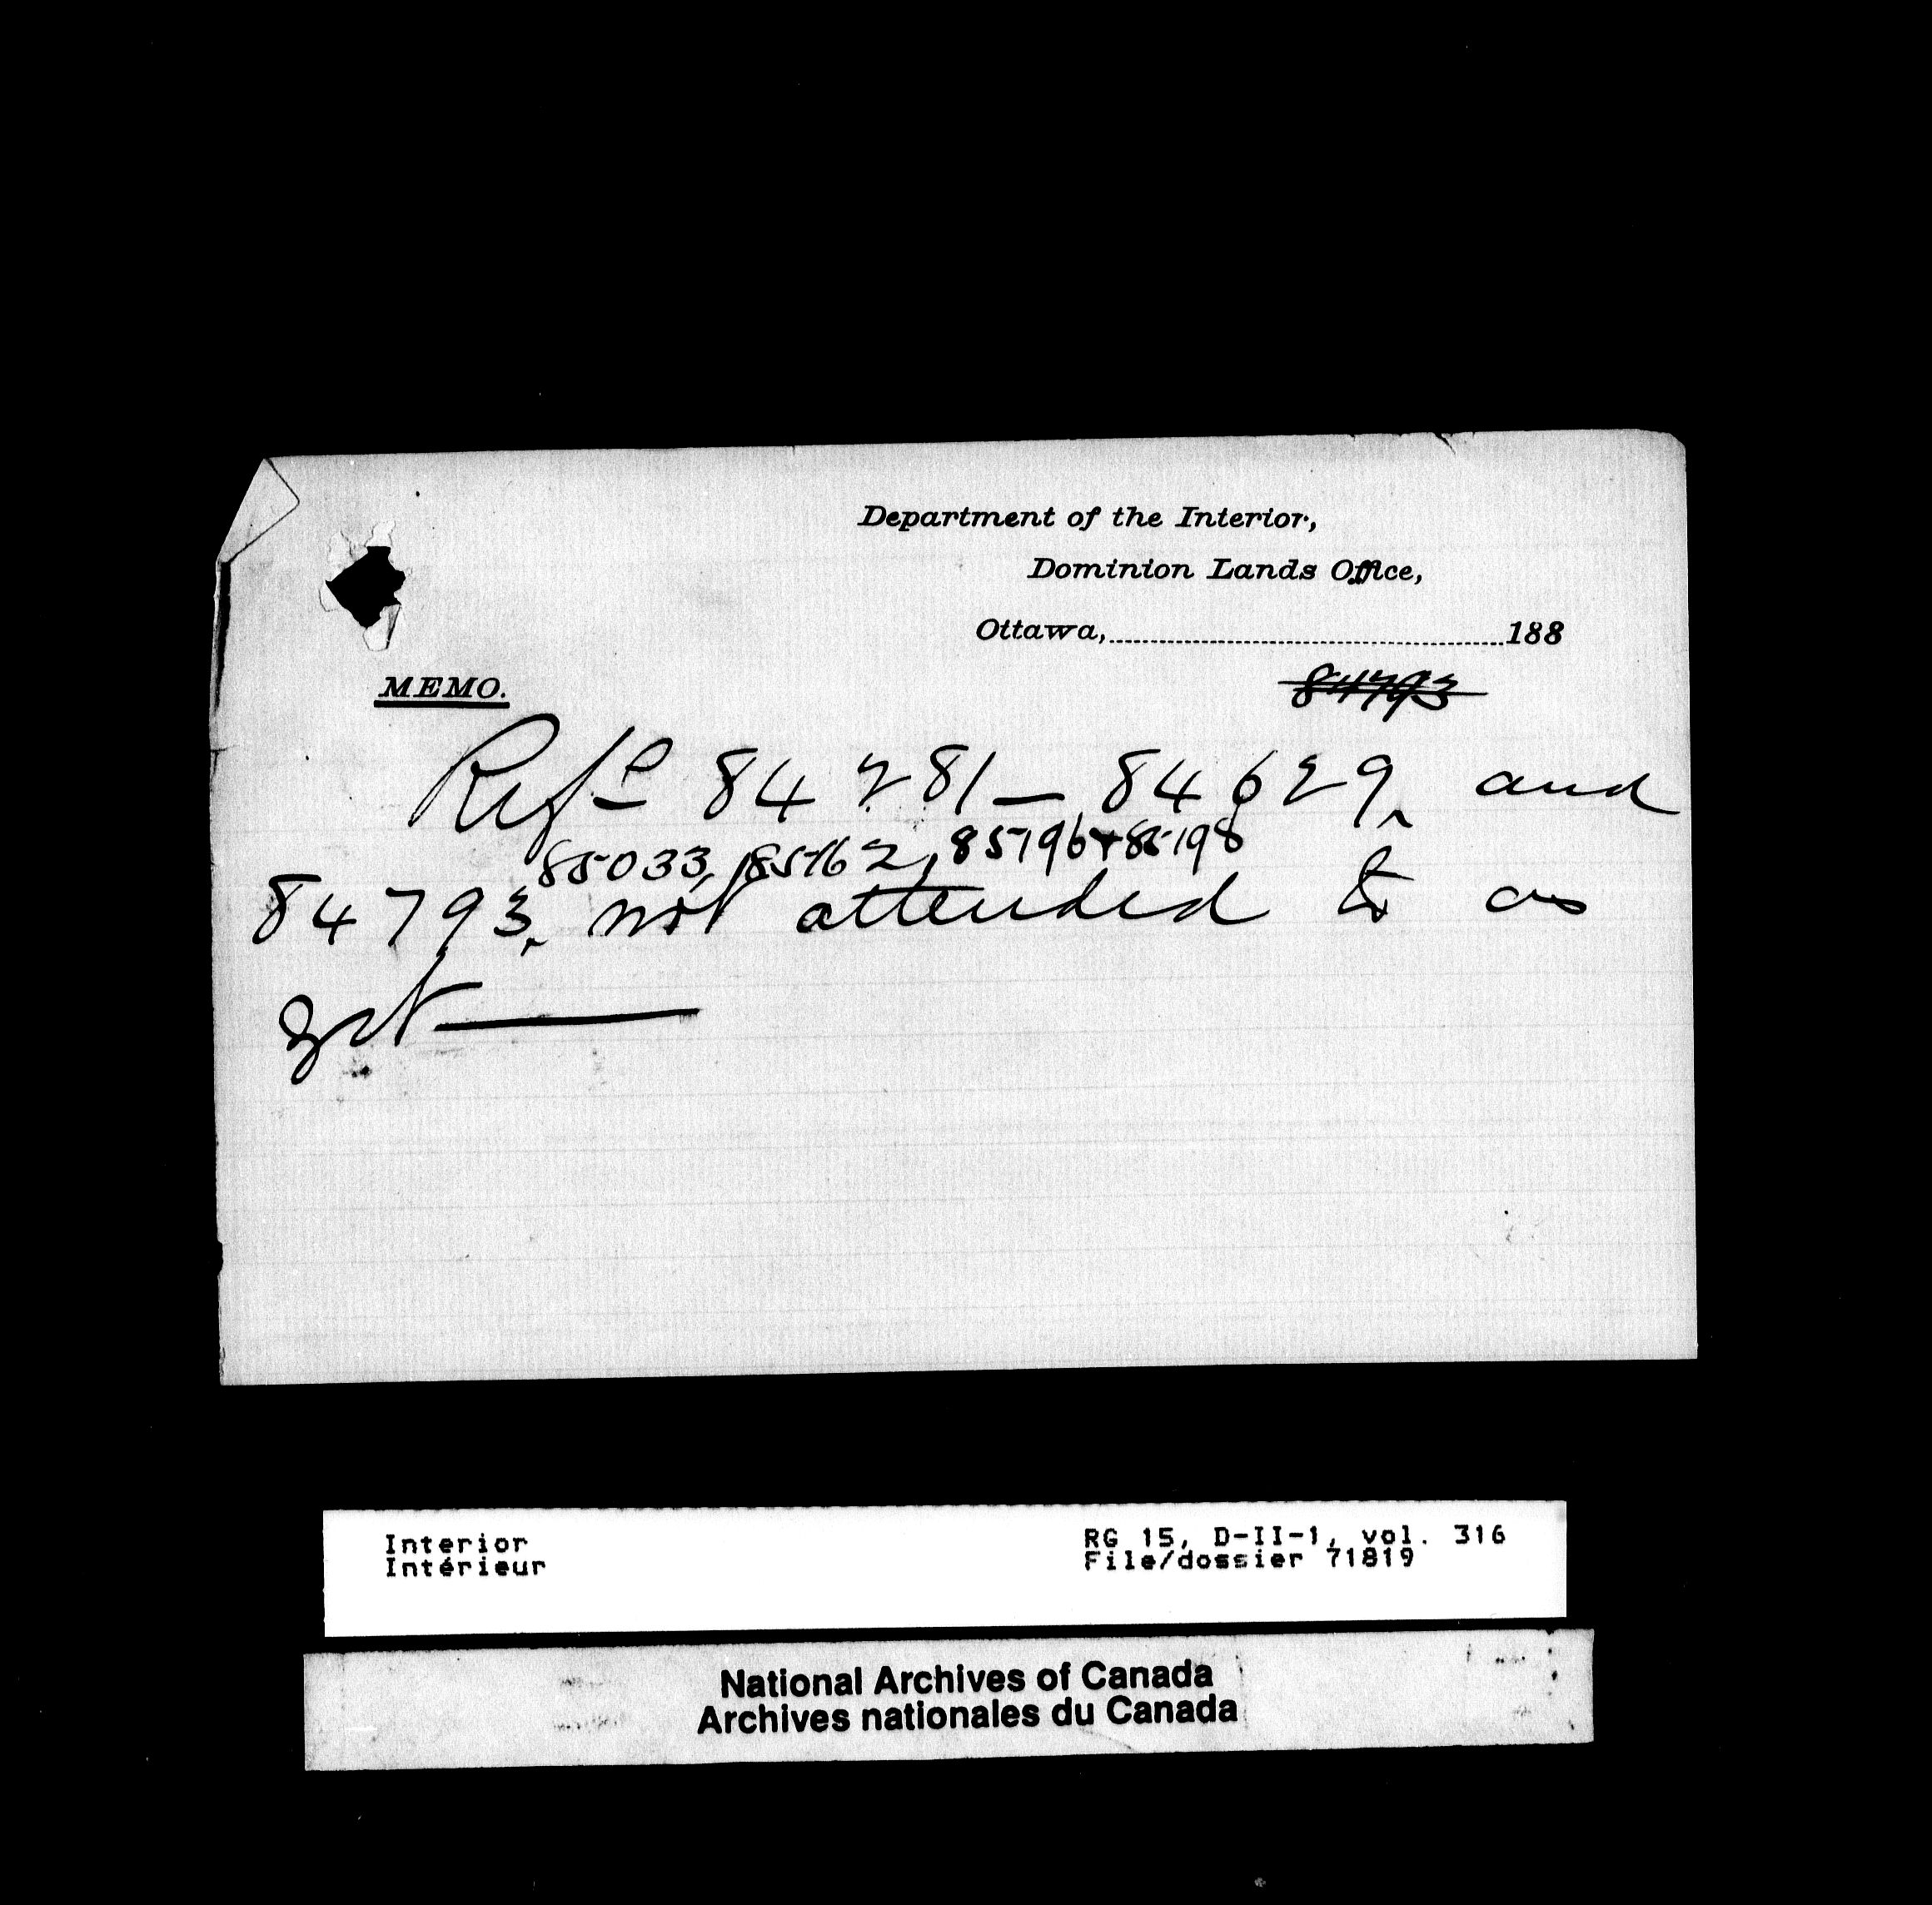 Department of the Interior,
Dominion Lands Office,
Ottawa,..........188
MEMO.
84793
Refce 84281 — 84629, and
85033, 85162, 85196 + 85198
84793, not attended to as
yet —
Interior
Intérieur
RG 15, D-II-1, vol. 316
File/dossier 71819
National Archives of Canada
Archives nationales du Canada